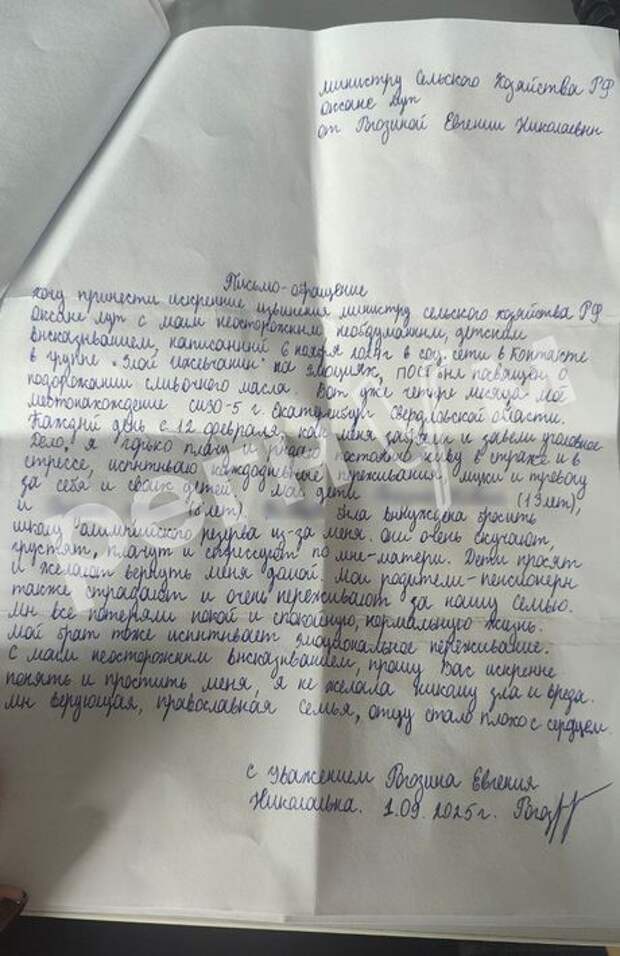 министру Сельского Хозяйства РФ
Оксане Лут
от Рогозиной Евгении Николаевны
Письмо-обращение
хочу принести искренние извинения министру сельского хозяйства РФ
Оксане Лут с моим неосторожным необдуманным, детским
высказыванием, написанный 6 ноября 2024г в соц. сети в Контакте
в группе "Злой ижевчанин" на эмоциях, пост был посвящён о
подорожании сливочного масла. Вот уже четыре месяца моё
местонахождение СИЗО-5 г. Екатеринбург Свердловской области.
Каждый день с 12 февраля, как меня забрали и завели уголовное
Дело, я горько плачу и рыдаю постоянно живу в страхе и в
стрессе, испытываю каждодневные переживания, муки и тревогу
за себя и своих детей. Мои дети (13 лет),
и лет). была вынуждена бросить
школу олимпийского резерва из-за меня. они очень скучают,
грустят, плачут и стрессуют по мне-матери. Дети просят
и желают вернуть меня домой. Мои родители-пенсионеры
также страдают и очень переживают за нашу семью.
Мы все потеряли покой и спокойную, нормальную жизнь.
Мой брат тоже испытывает эмоциональное переживание.
С моим неосторожным высказыванием, прошу Вас искренне
понять и простить меня, я не желала никому зла и вреда.
мы верующая, православная семья, отцу стало плохо с сердцем.
с Уважением Рогозина Евгения
Николаевна. 1.09.2025г.